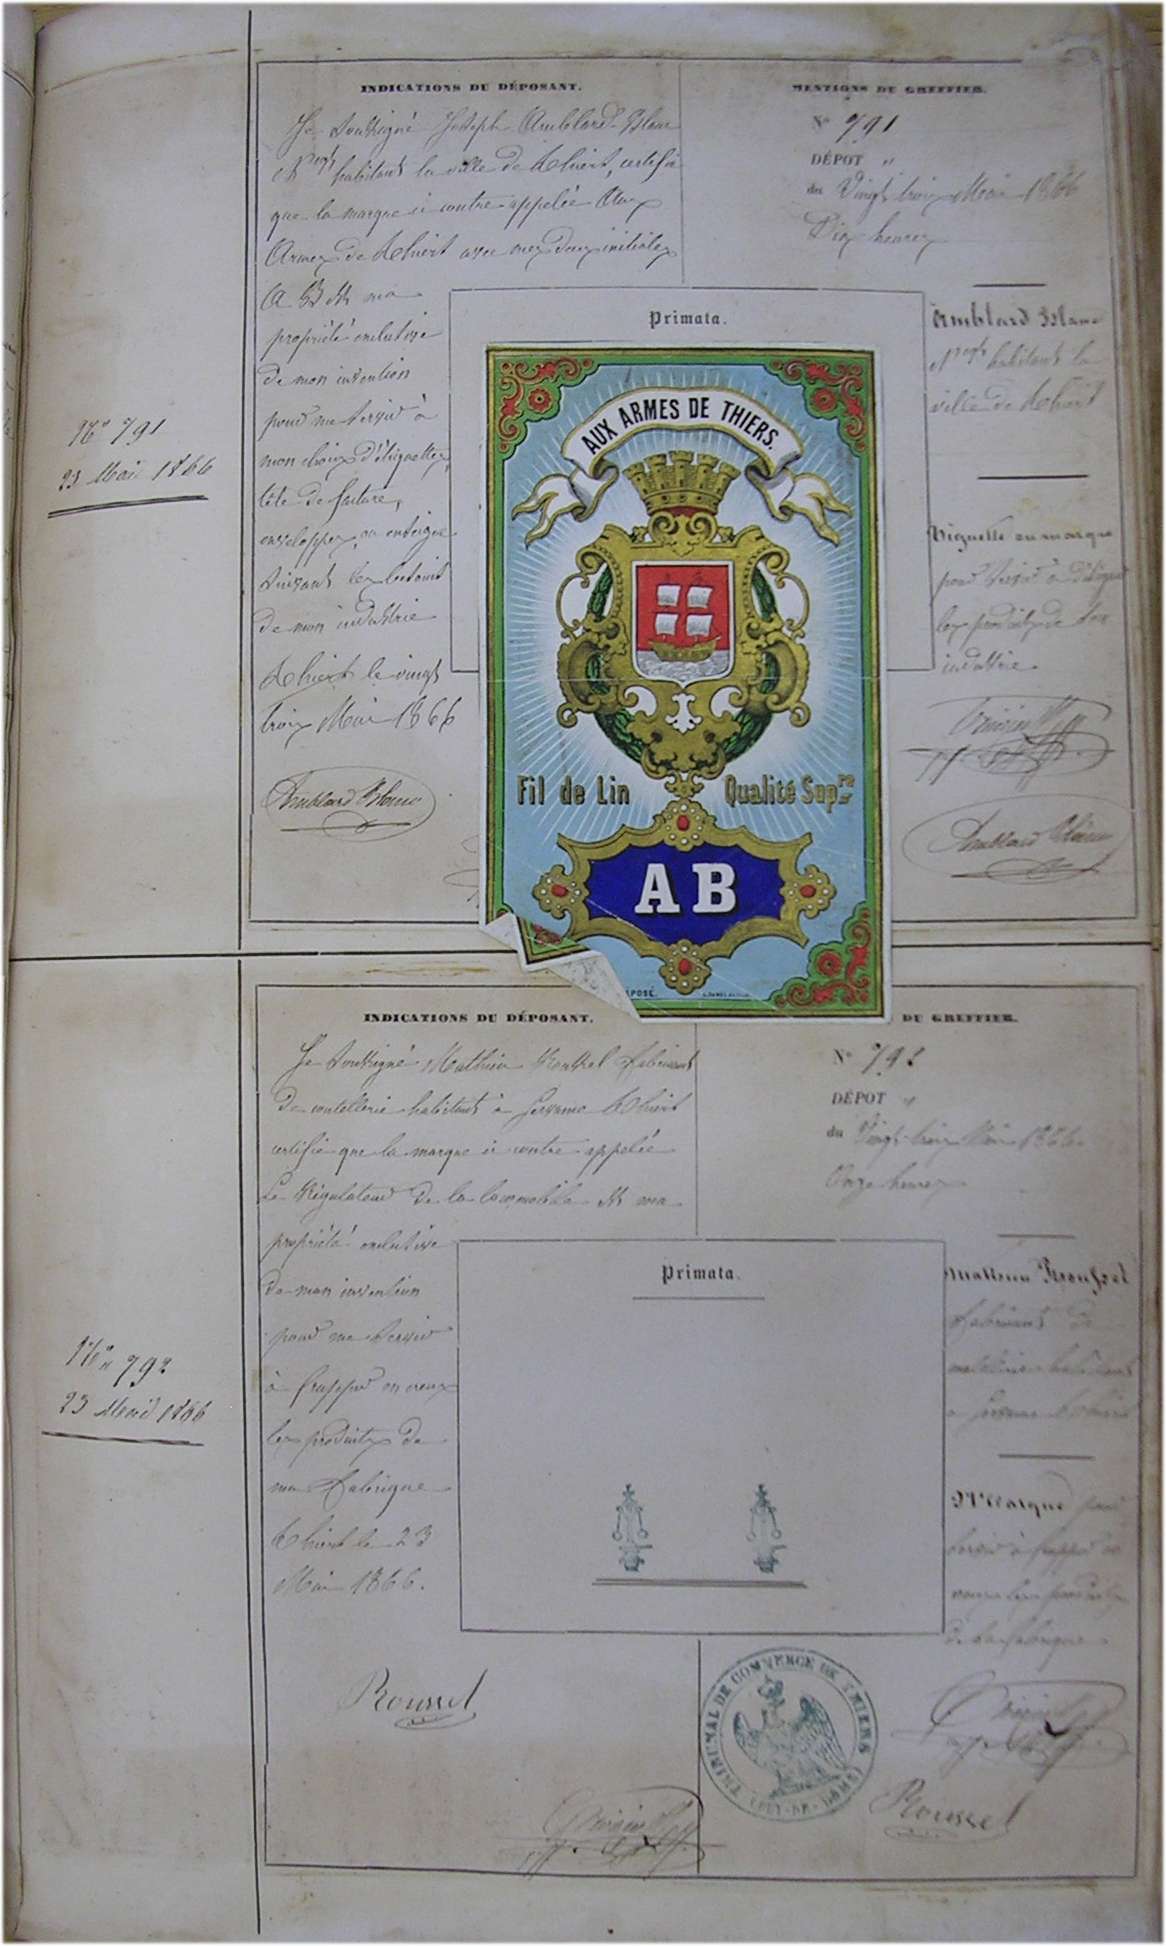 INDICATIONS DU DÉPOSANT.
Je soussigné Joseph Amblard-Blanc
Negt habitant la ville de Thiers, certifie
que la marque ci contre appelée Aux
Armes de Thiers avec mes deux initiales
A B est ma
propriété exclusive
de mon invention
pour me servir à
mon choix d'étiquettes,
tête de facture,
enveloppes, ou enseigne
suivant les besoins
de mon industrie
Thiers le vingt
trois Mai 1866
Amblard Blanc
MENTIONS DU GREFFIER.
N° 791
DÉPOT "
du Vingt trois Mai 1866
Dix heures
Amblard Blanc
Negt habitant la
ville de Thiers
Vignette ou marque
pour servir à désigner
les produits de son
industrie.
Amblard Blanc
N° 791
23 Mai 1866
Primata.
AUX ARMES DE THIERS.
Fil de Lin Qualité Supre
AB
POSÉ.
INDICATIONS DU DÉPOSANT.
Je soussigné Mathieu Roussel fabricant
de coutellerie habitant à Thiers
certifie que la marque ci contre appelée
Le Régulateur de la locomobile est ma
propriété exclusive
de mon invention
pour me servir
à frapper en creux
les produits de
ma fabrique
Thiers le 23
Mai 1866.
Roussel
DU GREFFIER.
N° 792
DÉPOT "
du Vingt trois Mai 1866.
Onze heures
Mathieu Roussel
fabricant de
coutellerie habitant
à Thiers
Marque pour
servir à frapper en
creux les produits
de sa fabrique
Roussel
N° 792
23 Mai 1866
Primata.
TRIBUNAL DE COMMERCE DE THIERS
(PUY-DE-DOME)